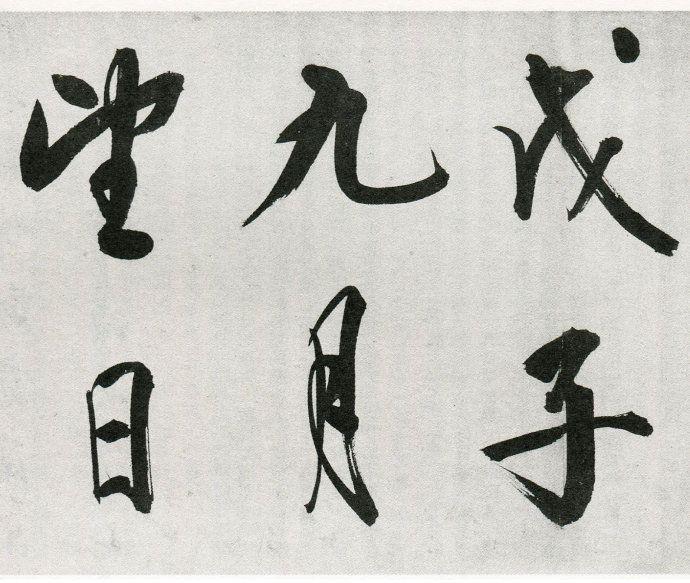 戊子
九月
望日